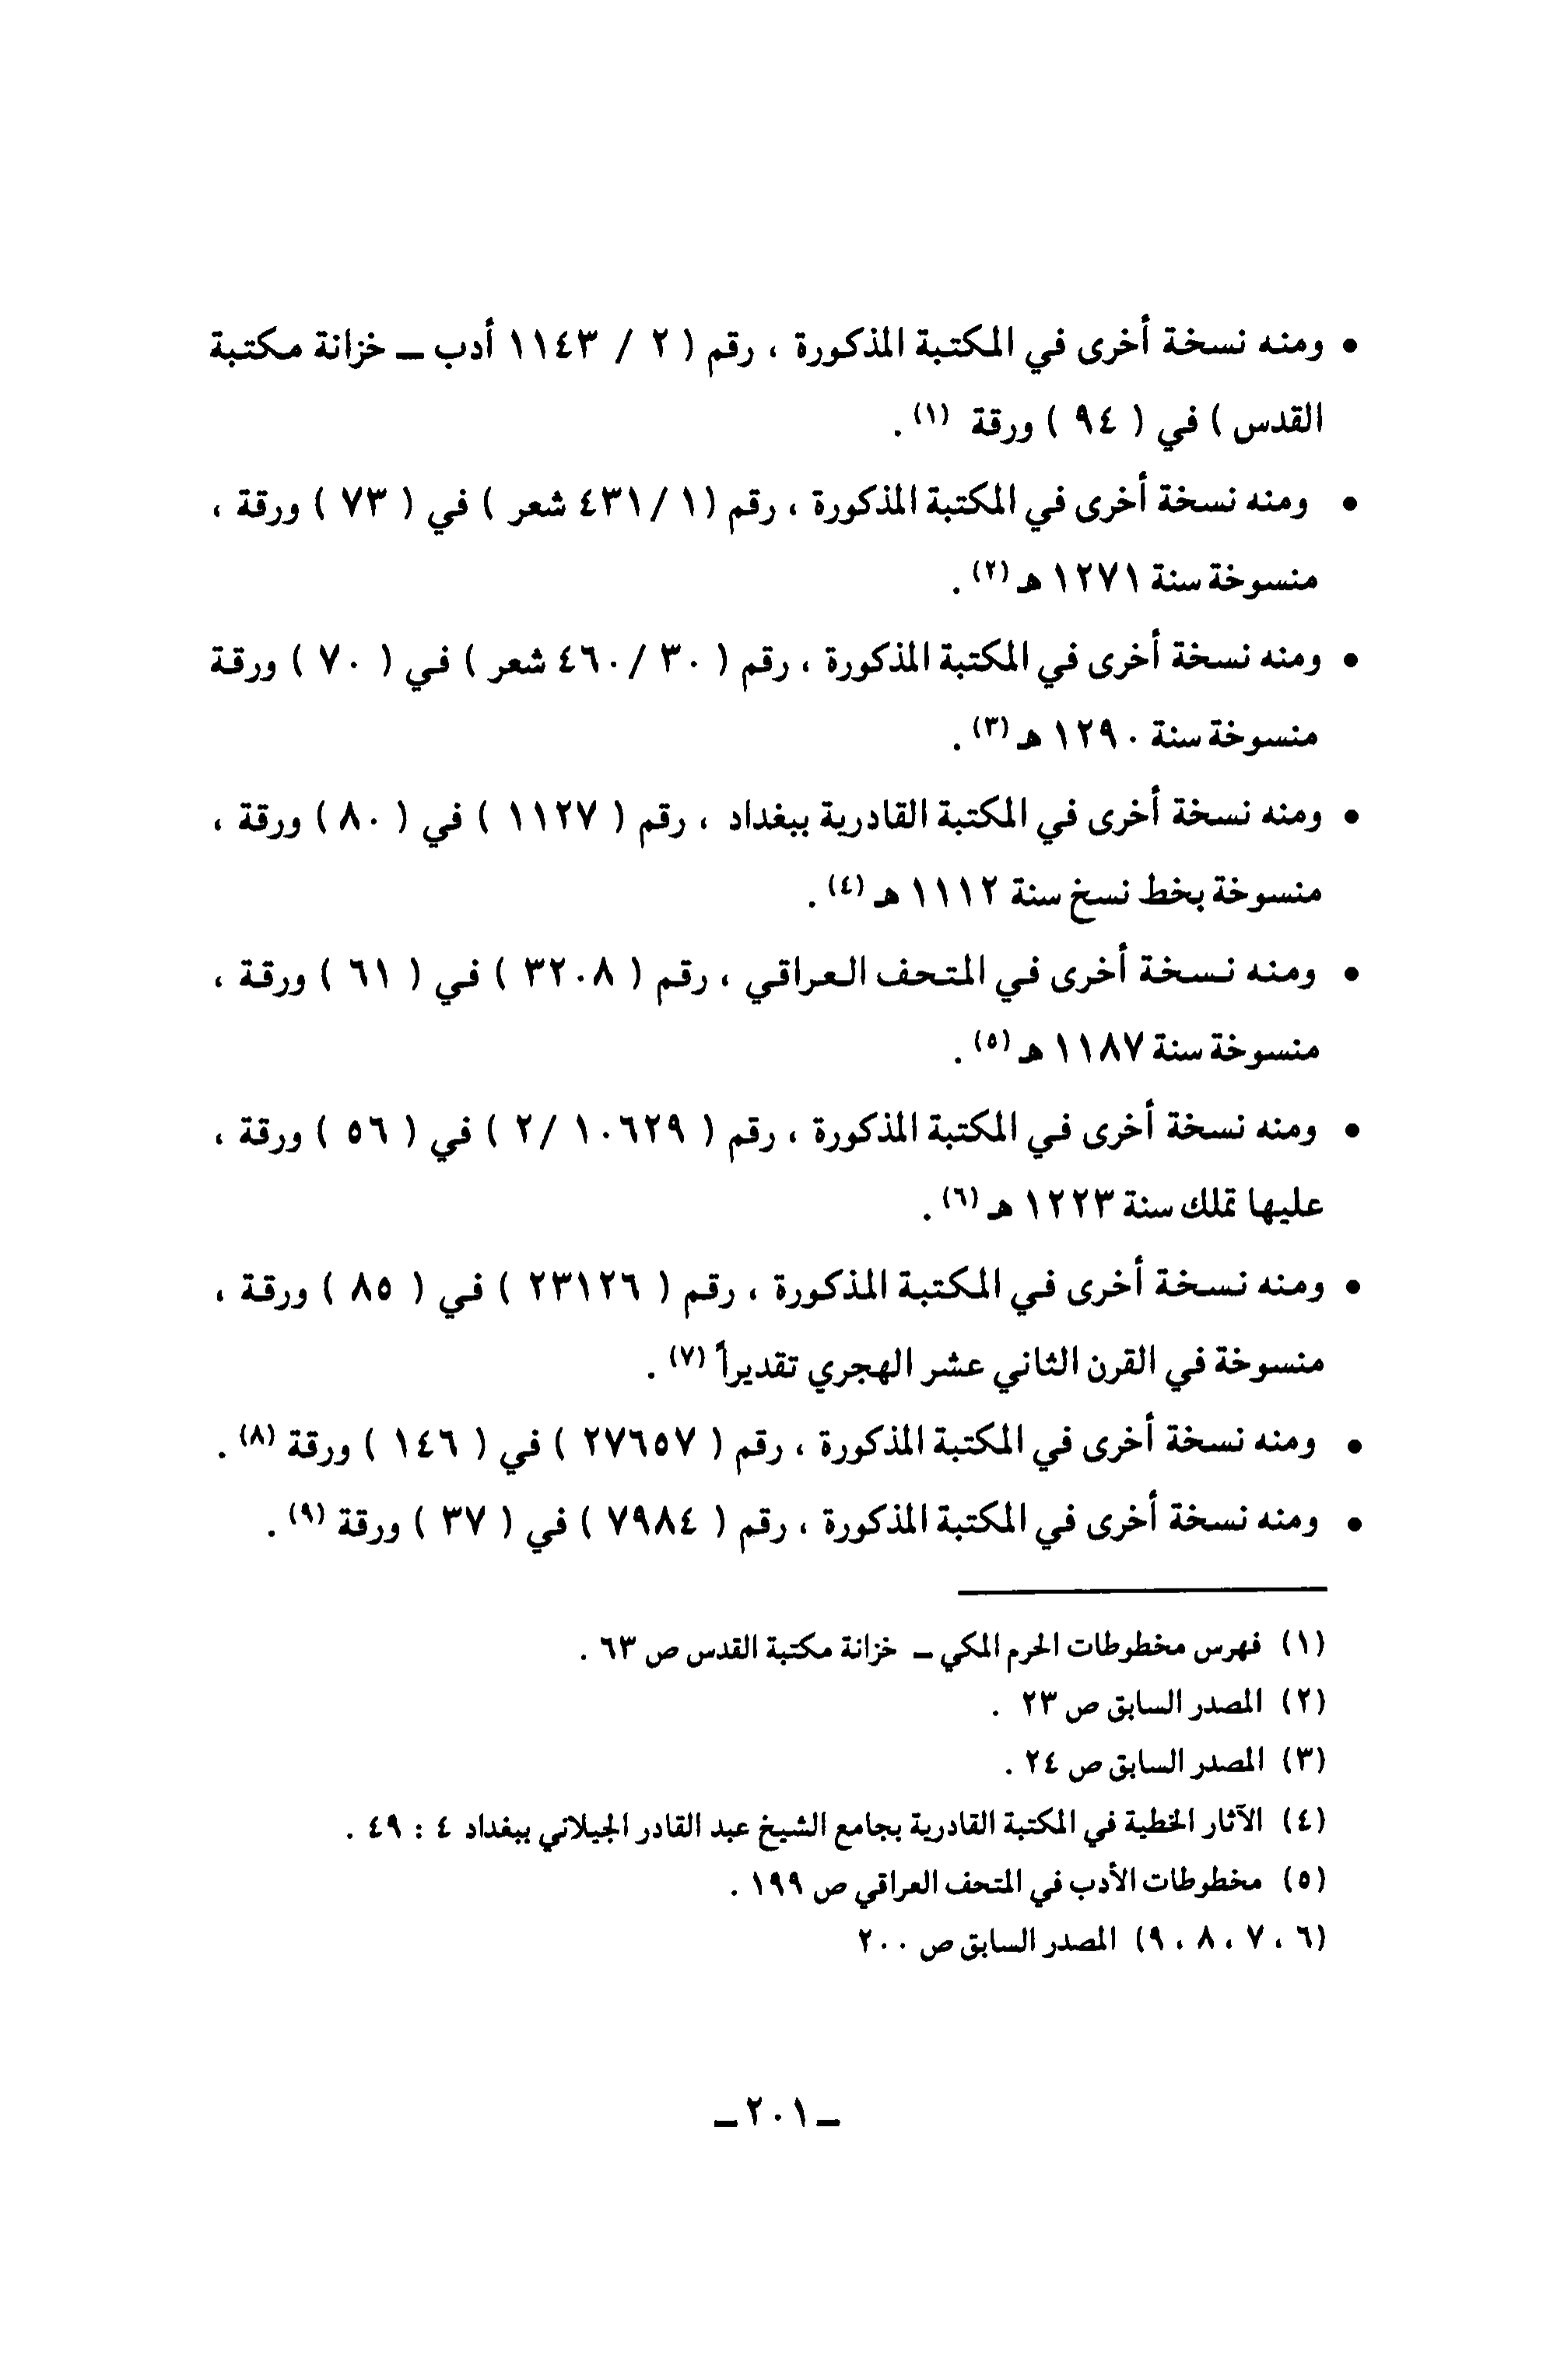 • ومنه نسخة أخرى في المكتبة المذكورة ، رقم ( ٢ / ١١٤٣ أدب ــ خزانة مكتبة
القدس ) في ( ٩٤ ) ورقة (١) .
• ومنه نسخة أخرى في المكتبة المذكورة ، رقم ( ١ / ٤٣١ شعر ) في ( ٧٣ ) ورقة ،
منسوخة سنة ١٢٧١ هـ (٢) .
• ومنه نسخة أخرى في المكتبة المذكورة ، رقم ( ٣٠ / ٤٦٠ شعر ) في ( ٧٠ ) ورقة
منسوخة سنة ١٢٩٠ هـ (٣) .
• ومنه نسخة أخرى في المكتبة القادرية ببغداد ، رقم ( ١١٢٧ ) في ( ٨٠ ) ورقة ،
منسوخة بخط نسخ سنة ١١١٢ هـ (٤) .
• ومنه نسخة أخرى في المتحف العراقي ، رقم ( ٣٢٠٨ ) في ( ٦١ ) ورقة ،
منسوخة سنة ١١٨٧ هـ (٥) .
• ومنه نسخة أخرى في المكتبة المذكورة ، رقم ( ١٠٦٢٩ / ٢ ) في ( ٥٦ ) ورقة ،
عليها تملك سنة ١٢٢٣ هـ (٦) .
• ومنه نسخة أخرى في المكتبة المذكورة ، رقم ( ٢٣١٢٦ ) في ( ٨٥ ) ورقة ،
منسوخة في القرن الثاني عشر الهجري تقديراً (٧) .
• ومنه نسخة أخرى في المكتبة المذكورة ، رقم ( ٢٧٦٥٧ ) في ( ١٤٦ ) ورقة (٨) .
• ومنه نسخة أخرى في المكتبة المذكورة ، رقم ( ٧٩٨٤ ) في ( ٣٧ ) ورقة (٩) .
(١) فهرس مخطوطات الحرم المكي ــ خزانة مكتبة القدس ص ٦٣ .
(٢) المصدر السابق ص ٢٣ .
(٣) المصدر السابق ص ٢٤ .
(٤) الآثار الخطية في المكتبة القادرية بجامع الشيخ عبد القادر الجيلاني ببغداد ٤ : ٤٩ .
(٥) مخطوطات الأدب في المتحف العراقي ص ١٩٩ .
(٦ ، ٧ ، ٨ ، ٩) المصدر السابق ص ٢٠٠
ــ ٢٠١ ــ